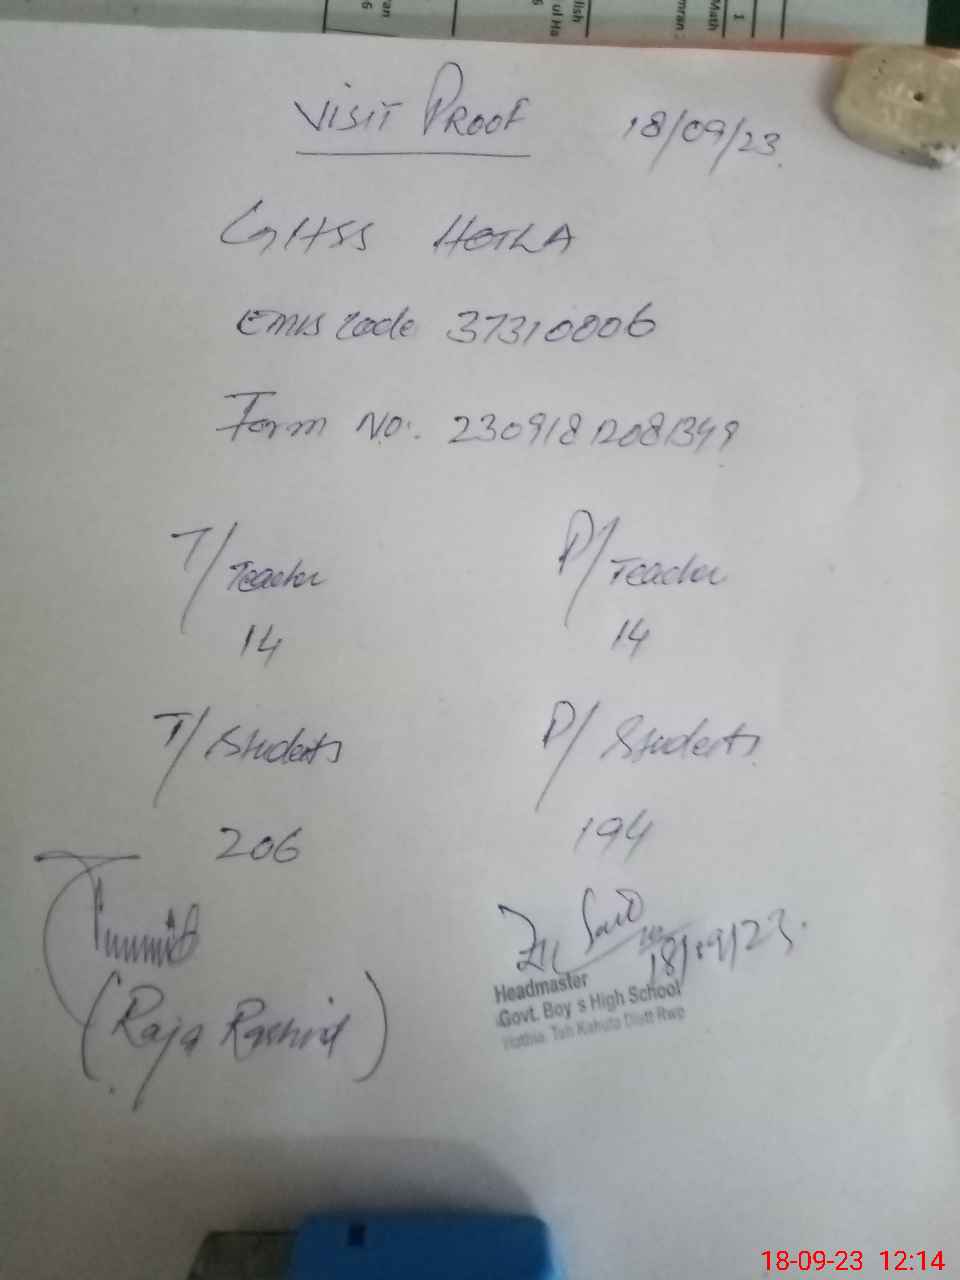 VISIT PROOF 18/09/23
GHSS HOTLA
EMIS Code 37310006
Form No. 230918 12081349
T/Teacher P/Teacher
14 14
T/Students P/Students
206 194
18/09/23
Headmaster
Govt. Boy s High School
Teh Kahuta Distt Rwp
(Raja Rashid)
18-09-23 12:14